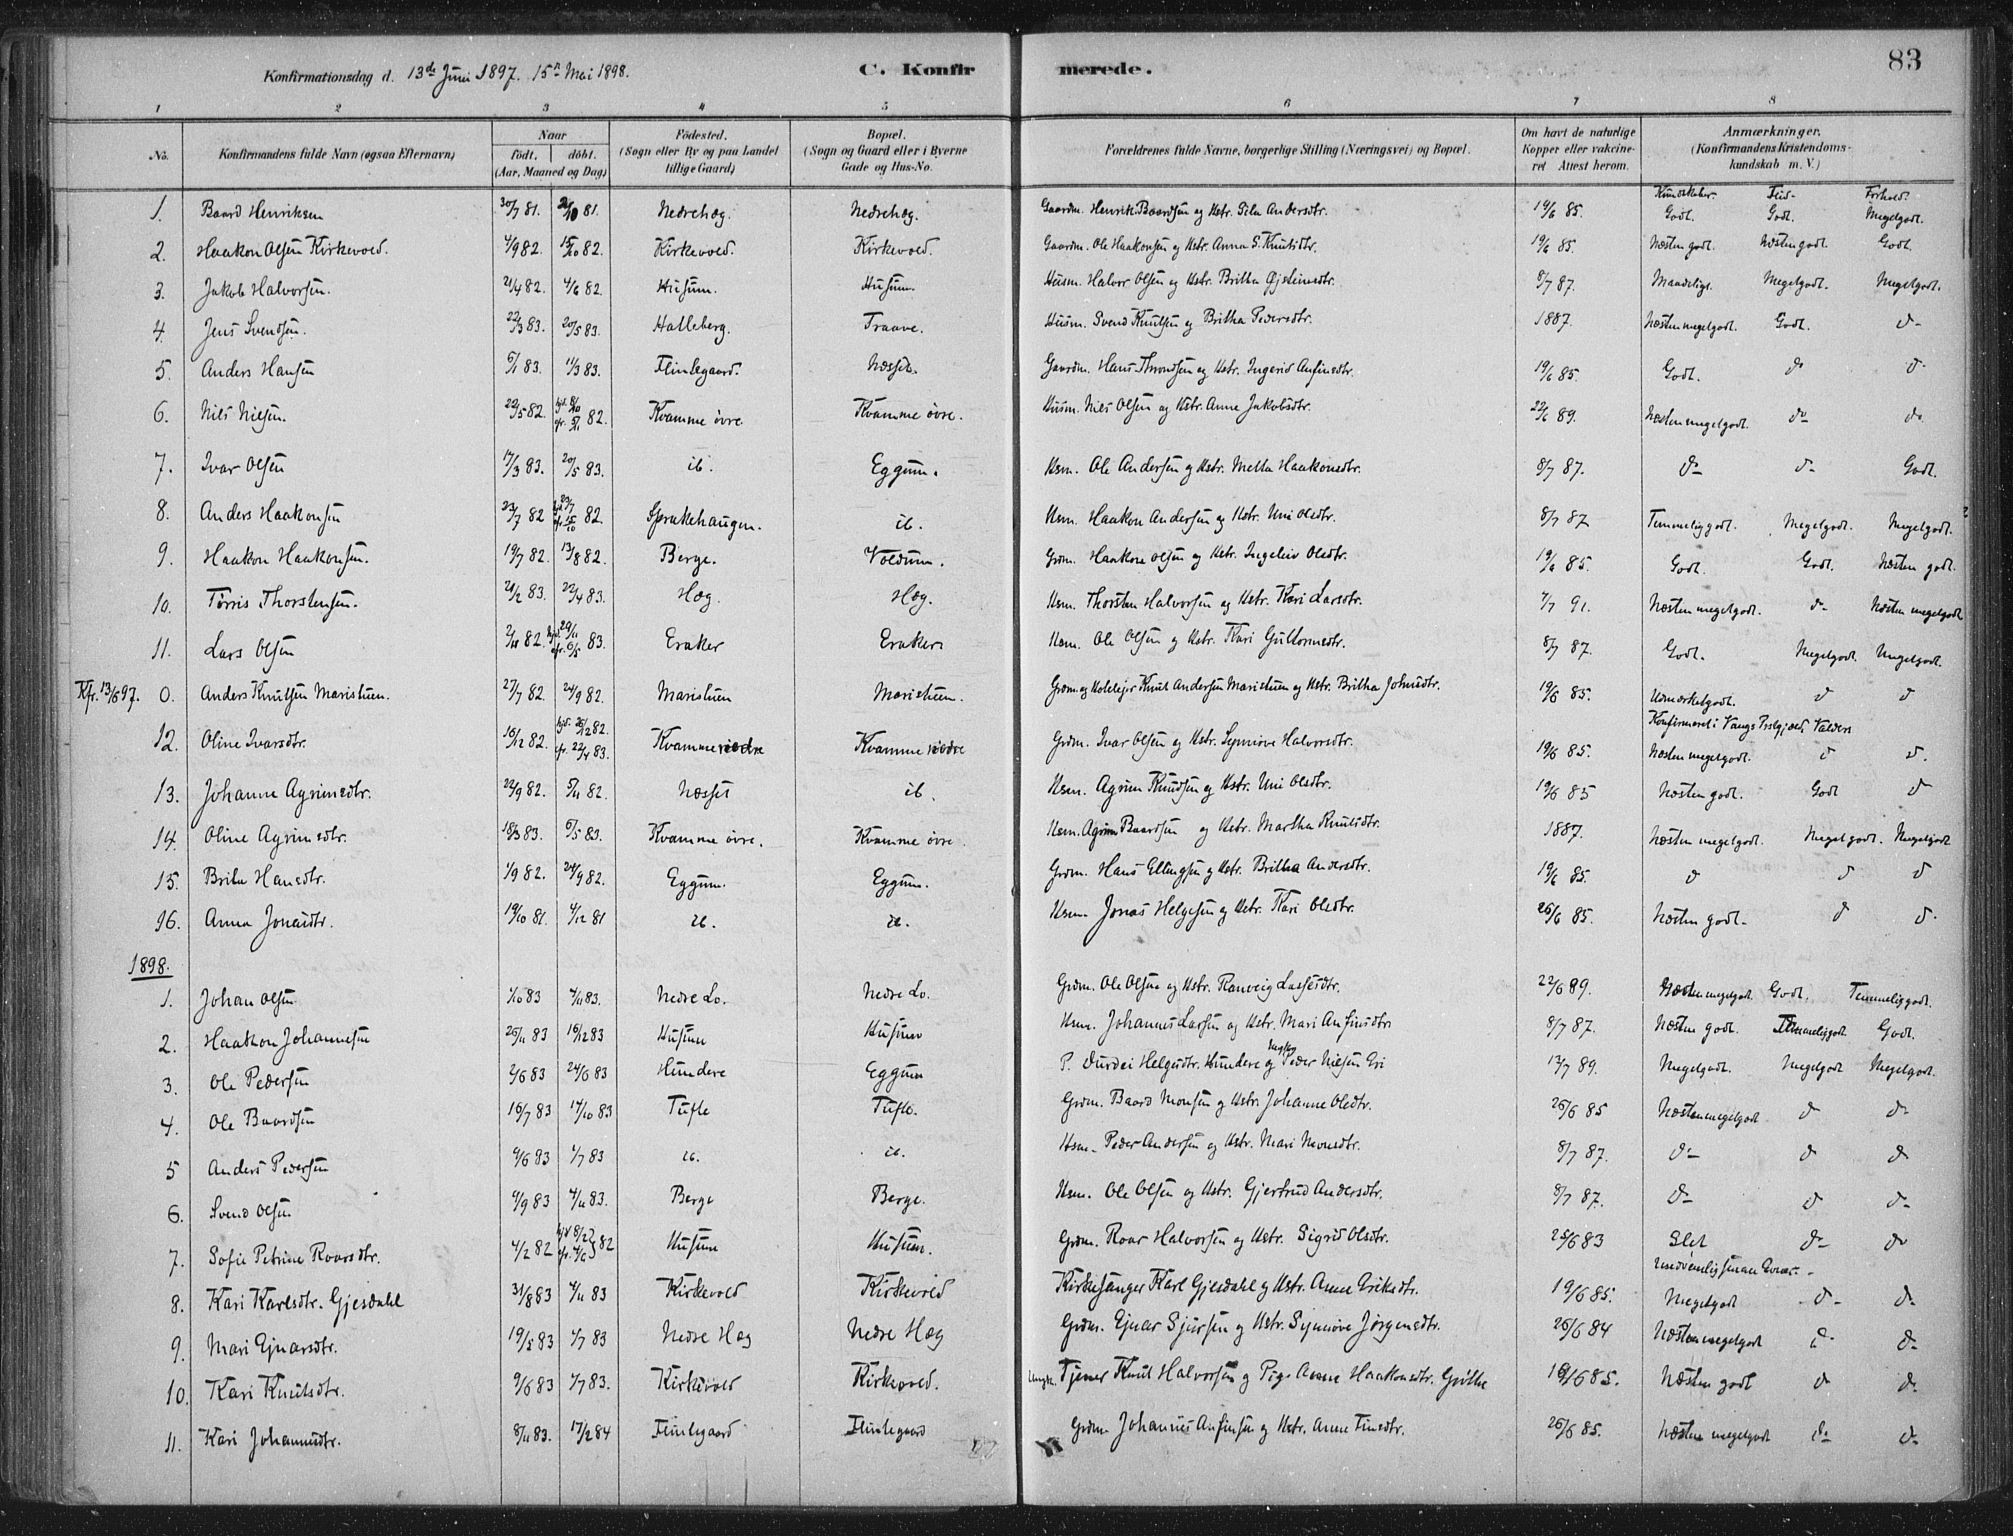 83
Konfirmationsdag d. 13de Juni 1897. 15de Mai 1898. C. Konfirmerede.
1 2 3 4 5 6 7 8
No. Konfirmandens fulde Navn (ogsaa Efternavn) Naar født, døbt. (Aar, Maaned og Dag) Fødested. (Sogn eller By og paa Landet tillige Gaard) Bopæl. (Sogn og Gaard eller i Byerne Gade og Hus-No. Forældrenes fulde Navne, borgerlige Stilling (Næringsvei) og Bopæl. Om havt de naturlige Kopper eller vakcineret Attest herom. Anmærkninger. (Konfirmandens Kristendomskundskab m. V.)
Kundskaber. Flid. Forhold.
1. Baard Henriksen 30/7 81. /10 81. Nedrehæg. Nedrehæg. Gaardm. Henrik Baardsen og Kstr. Andersdtr. 19/6 85. Godt. Godt. Megetgodt.
2. Haakon Olsen Kirkevold. 4/9 82. 15/10 82. Kirkevold. Kirkevold. Gaardm. Ole Haakonsen og Kstr. Anna S. Knutsdtr. 19/6 85. Næsten godt. Næsten godt. Godt.
3. Jakob Halvorsen. 21/4 82. 4/6 82. Husum. Husum. Husm. Halvor Olsen og Kstr. Britha Øysteinsdtr. 8/7 87. Maadeligt. Megetgodt. Megetgodt.
4. Jens Svendsen. 22/3 83. 20/5 83. Halleberg. Traave. Husm. Svend Knutsen og Britha Pedersdtr. 1887. Næsten megetgodt. Godt. do
5. Anders Hansen 6/1 83. 11/3 83. Flintegaard. Næsset. Gaardm. Hans Throndsen og Kstr. Ingerid Anfinsdtr. 19/6 85. Godt. do do
6. Nils Nilsen. 22/5 82. hjd. 8/10 fr. 5/11 82. Kvamme øvre. Kvamme øvre. Husm. Nils Olsen og Kstr. Anne Jakobsdtr. 22/6 89. Næsten megetgodt. do do
7. Ivar Olsen 17/3 83. 20/5 83. ib. Eggum. Hsm. Ole Andersen og Kstr. Metta Haakonsdtr. 8/7 87. do do Godt.
8. Anders Haakonsen 23/7 82 hjd. 23/7 fr. 15/10 82. Sprakehaugen. ib. Hsm. Haakon Andersen og Kstr. Uni Olsdtr. 8/7 87 Temmelig godt. Megetgodt. Megetgodt.
9. Haakon Haakonsen. 19/7 82. 13/8 82. Berge. Voldum. Grdm. Haakon Olsen og Kstr. Ingeleiv Olsdtr. 19/6 85. Godt. Godt. Næsten godt.
10. Tørris Thorstensen. 21/2 83. 22/4 83. Hæg. Hæg. Hsm. Thorsten Halvorsen og Kstr. Kari Larsdtr. 7/7 91. Næsten megetgodt. do Næsten megetgodt
11. Lars Olsen 2/11 82. hjd. 29/11 fr. 6/5 83. Eraker Eraker Hsm. Ole Olsen og Kstr. Kari Guttormsdtr. 8/7 87. Godt. Megetgodt. Megetgodt.
Kfr. 13/6 97. 0. Anders Knutsen Maristuen. 27/7 82. 24/9 82. Maristuen Maristuen. Grdm. og Hotelejer Knut Andersen Maristuen og Kstr. Britha Johnsdtr. 19/6 85. Udmærketgodt. do do
Konfirmeret i Vangs Prstgjæld, Valders
12. Oline Ivarsdtr. 16/12 82. hjd. 26/12 82. fr. 22/4 83. Kvamme nedre Kvamme nedre Grdm. Ivar Olsen og Kstr. Synnøve Halvorsdtr. 19/6 85. Næsten megetgodt. do do
13. Johanne Agrimsdtr. 22/9 82. 5/11 82. Næsset ib. Hsm. Agrim Knudsen og Kstr. Uni Olsdtr. 19/6 85 Næsten godt. Godt do
14. Oline Agrimsdtr. 18/3 83. 6/5 83. Kvamme øvre. Kvamme øvre. Hsm. Agrim Baardsen og Kstr. Martha Knutsdtr. 1887. Næsten megetgodt. Megetgodt. Megetgodt
15. Brita Hansdtr. 1/9 82. 24/9 82. Eggum. Eggum. Grdm. Hans Ellingsen og Kstr. Britha Andersdtr. 19/6 85. do do do
16. Anna Jonasdtr. 19/10 81. 4/12 81 ib. ib. Hsm. Jonas Helgesen og Kstr. Kari Olsdtr. 26/6 85. Næsten godt. do do
1898.
1. Johan Olsen 1/10 83 4/11 83. Nedre Lo. Nedre Lo. Grdm. Ole Olsen og Kstr. Ranveig Lassesdtr. 22/6 89. Næsten megetgodt Godt. Temmeliggodt.
2. Haakon Johannesen 25/11 83 16/12 83 Husum Husum Hsm. Johannes Larsen og Kstr. Mari Anfinsdtr. 8/7 87. Næsten godt. Temmeliggodt Godt.
3. Ole Pedersen 2/6 83 24/6 83 Hundere Eggum P. Durdei Helgesdtr. Hundere og Ungkar Peder Nilsen Eri 13/7 89. Megetgodt. Megetgodt Megetgodt.
4. Ole Baardsen 16/7 83 14/10 83 Tufte Tufte. Grdm. Baard Monsen og Kstr. Johanne Olsdtr. 26/6 85 Næsten megetgodt do do
5 Anders Pedersen 9/6 83 1/7 83 ib. ib. Hsm. Peder Andersen og Kstr. Mari Monsdtr. 8/7 87. do do do
6. Svend Olsen 9/9 83 4/11 83. Berge Berge. Hsm. Ole Olsen og Kstr. Gjertrud Andersdtr. 8/7 87. do do do
7. Sofie Petrine Roarsdtr. 4/2 82 hjd 8/2 fr. 4/6 82 Husum Husum. Grdm. Roar Halvorsen og Kstr. Sigrid Olsdtr. 25/6 83 Slet do do
8. Kari Karlsdtr. Gjesdahl 31/8 83 4/11 83 Kirkevold Kirkevold Kirkesanger Karl Gjesdahl og Kstr. Anna Eriksdtr. 19/6 85. Megetgodt do do
9. Mari Ejnarsdtr. 19/5 83 1/7 83 Nedre Hæg Nedre Hæg Grdm. Ejnar Sjursen og Kstr. Synnøve Jørgensdtr. 26/6 84 Næsten megetgodt do do
10. Kari Knutsdtr. 9/6 83 1/7 83. Kirkevold Kirkevold. Ungk. Tjener Knut Halvorsen og Pige Anne Haakonsdtr. Grøthe 19/6 85. Næsten godt do do
11. Kari Johannesdtr. 8/11 83. 17/2 84 Flintegaard Flintegaard Grdm Johannes Anfinsen og Kstr. Anne Finsdtr. 26/6 85. Næsten megetgodt do do